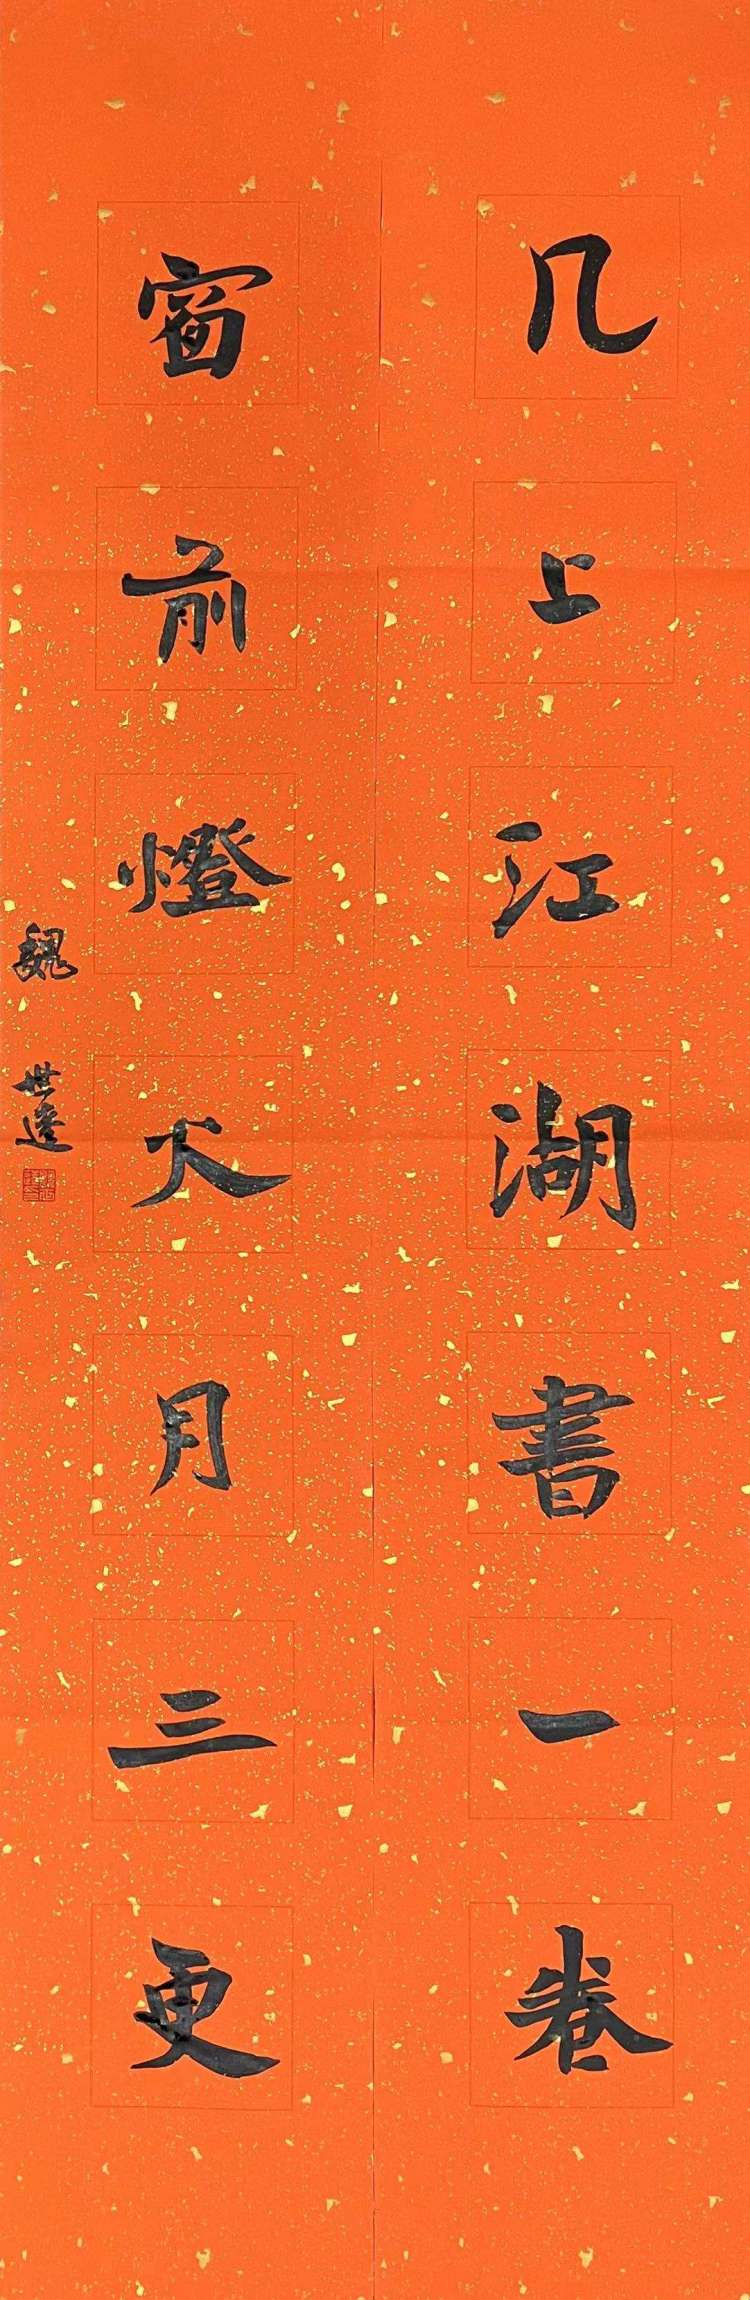 几上江湖書一卷
窗前燈火月三更
魏世逵